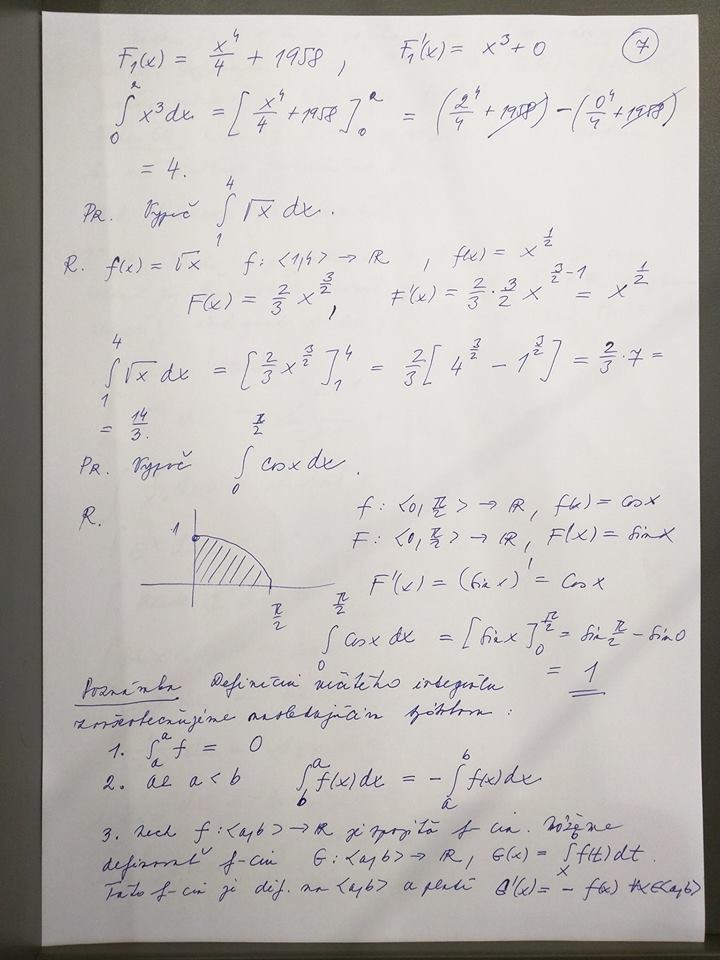 F₁(x) = x⁴/4 + 1958, F₁'(x) = x³ + 0 7
∫₀² x³dx = [x⁴/4 + 1958]₀² = (2⁴/4 + 1958) - (0⁴/4 + 1958)
= 4.
PR. Vypoč ∫₁⁴ √x dx.
R. f(x) = √x f: <1,4> → R, f(x) = x^(1/2)
F(x) = 2/3 x^(3/2), F'(x) = 2/3 · 3/2 x^(3/2 - 1) = x^(1/2)
∫₁⁴ √x dx = [2/3 x^(3/2)]₁⁴ = 2/3 [4^(3/2) - 1^(3/2)] = 2/3 · 7 =
= 14/3.
PR. Vypoč ∫₀^(π/2) cosx dx.
R. f: <0, π/2> → R, f(x) = cosx
1 F: <0, π/2> → R, F(x) = sinx
π/2 F'(x) = (sinx)' = cosx
∫₀^(π/2) cosx dx = [sinx]₀^(π/2) = sin π/2 - sin0
= 1
Poznámka Definíciu určitého integrálu
zovšeobecňujeme nasledujúcim spôsobom:
1. ∫ₐᵃ f = 0
2. ak a < b ∫_b^a f(x)dx = -∫_a^b f(x)dx
3. Nech f: <a,b> → R je spojitá f-cia. Môžeme
definovať f-ciu G: <a,b> → R, G(x) = ∫_x^b f(t)dt.
Táto f-cia je dif. na <a,b> a platí G'(x) = - f(x) ∀x∈<a,b>